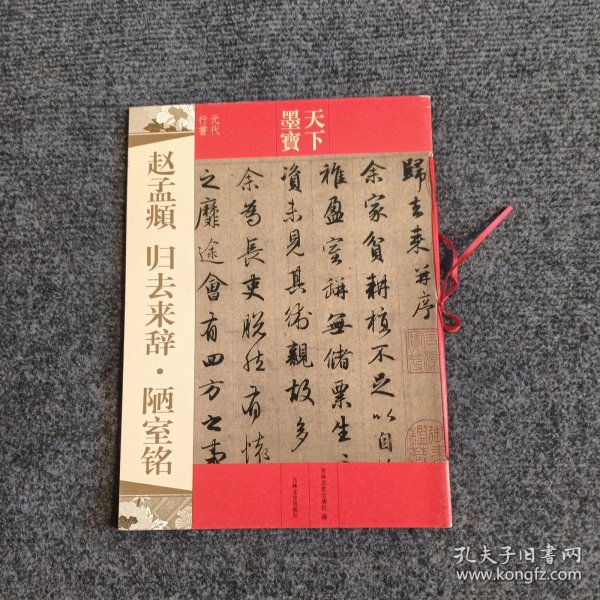 天下
墨寶
元代
行書
赵孟頫 归去来辞·陋室铭
歸去来并序
余家貧耕植不足以自
稚盈室缾無儲粟生
資未見其術親故多
余為長吏脱然有懷
之靡途會有四方之事
吉林文史出版社 编
吉林文史出版社
孔夫子旧书网
www.kongfz.com